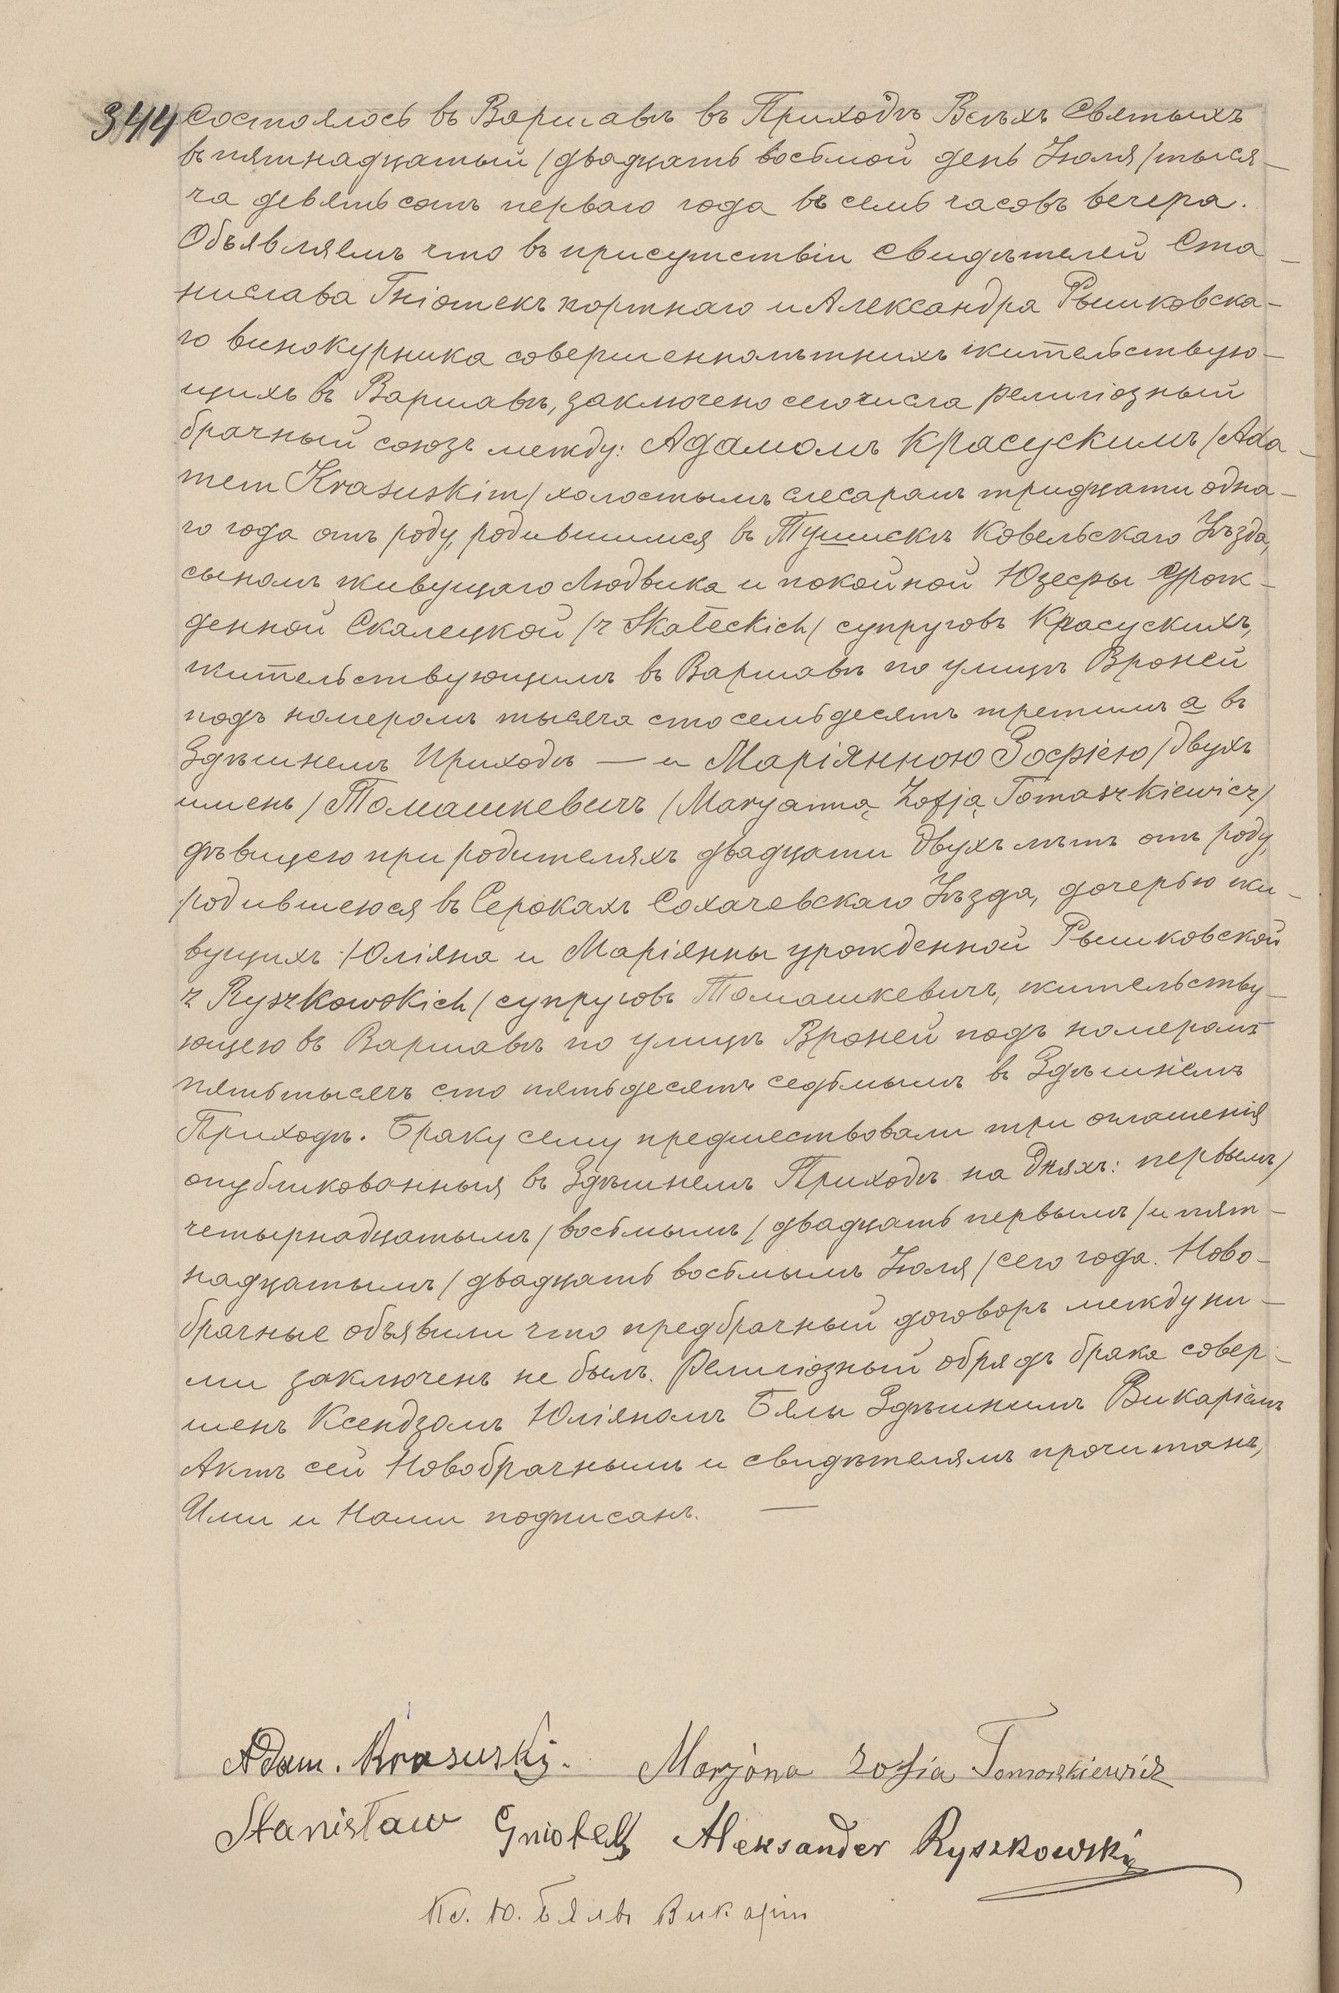 344 Состоялось въ Варшавѣ въ Приходѣ Всѣхъ Святыхъ
въ пятнадцатый /двадцать восьмой день Іюля/ тыся-
ча девятьсотъ перваго года въ семь часовъ вечера.
Объявляемъ что въ присутствіи свидѣтелей Ста-
нислава Гніотекъ портнаго и Александра Рышковска-
го винокурника совершеннолѣтнихъ жительствую-
щихъ въ Варшавѣ, заключено сего числа религіозный
брачный союзъ между: Адамомъ Красускимъ /Ada-
mem Krasuskim/ холостымъ слесаремъ тридцати одна-
го года отъ роду, родившимся въ Ковельскаго Уѣзда,
сыномъ живущаго Людвика и покойной Юзефы урож-
денной Скалецкой /z Skałeckich/ супруговъ Красускихъ,
жительствующимъ въ Варшавѣ по улицѣ Вроней
подъ номеромъ тысяча сто семьдесятъ третимъ а въ
Здѣшнемъ Приходѣ — и Маріянною Зофіею /двухъ
именъ/ Томашкевичъ /Maryanną Zofją Tomaszkiewicz/
дѣвицею при родителяхъ двадцати двухъ лѣтъ отъ роду,
родившеюся въ Серокахъ Сохачевскаго Уѣзда, дочерью жи-
вущихъ Юліяна и Маріянны урожденной Рышковской
z Ryszkowskich/ супруговъ Томашкевичъ, жительству-
ющею въ Варшавѣ по улицѣ Вроней подъ номеромъ
пять тысячъ сто пятьдесятъ седьмымъ въ Здѣшнемъ
Приходѣ. Браку сему предшествовали три оглашенія
опубликованныя въ Здѣшнемъ Приходѣ на дняхъ: первымъ/
четырнадцатымъ/ восьмымъ/ двадцать первымъ/ и пят-
надцатымъ/ двадцать восьмымъ Іюля/ сего года. Ново-
брачные объявили что предбрачный договоръ между ни-
ми заключенъ не былъ. Религіозный обрядъ брака совер-
шенъ Ксендзомъ Юліяномъ Бялы Здѣшнимъ Викаріемъ
Актъ сей Новобрачнымъ и свидѣтелямъ прочитанъ,
Ими и Нами подписанъ. —
Adam. Krasuski. Marjana Zofia Tomaszkiewicz
Stanisław Gniotek Aleksander Ryszkowski
Кс. Ю. Бялы Викарій